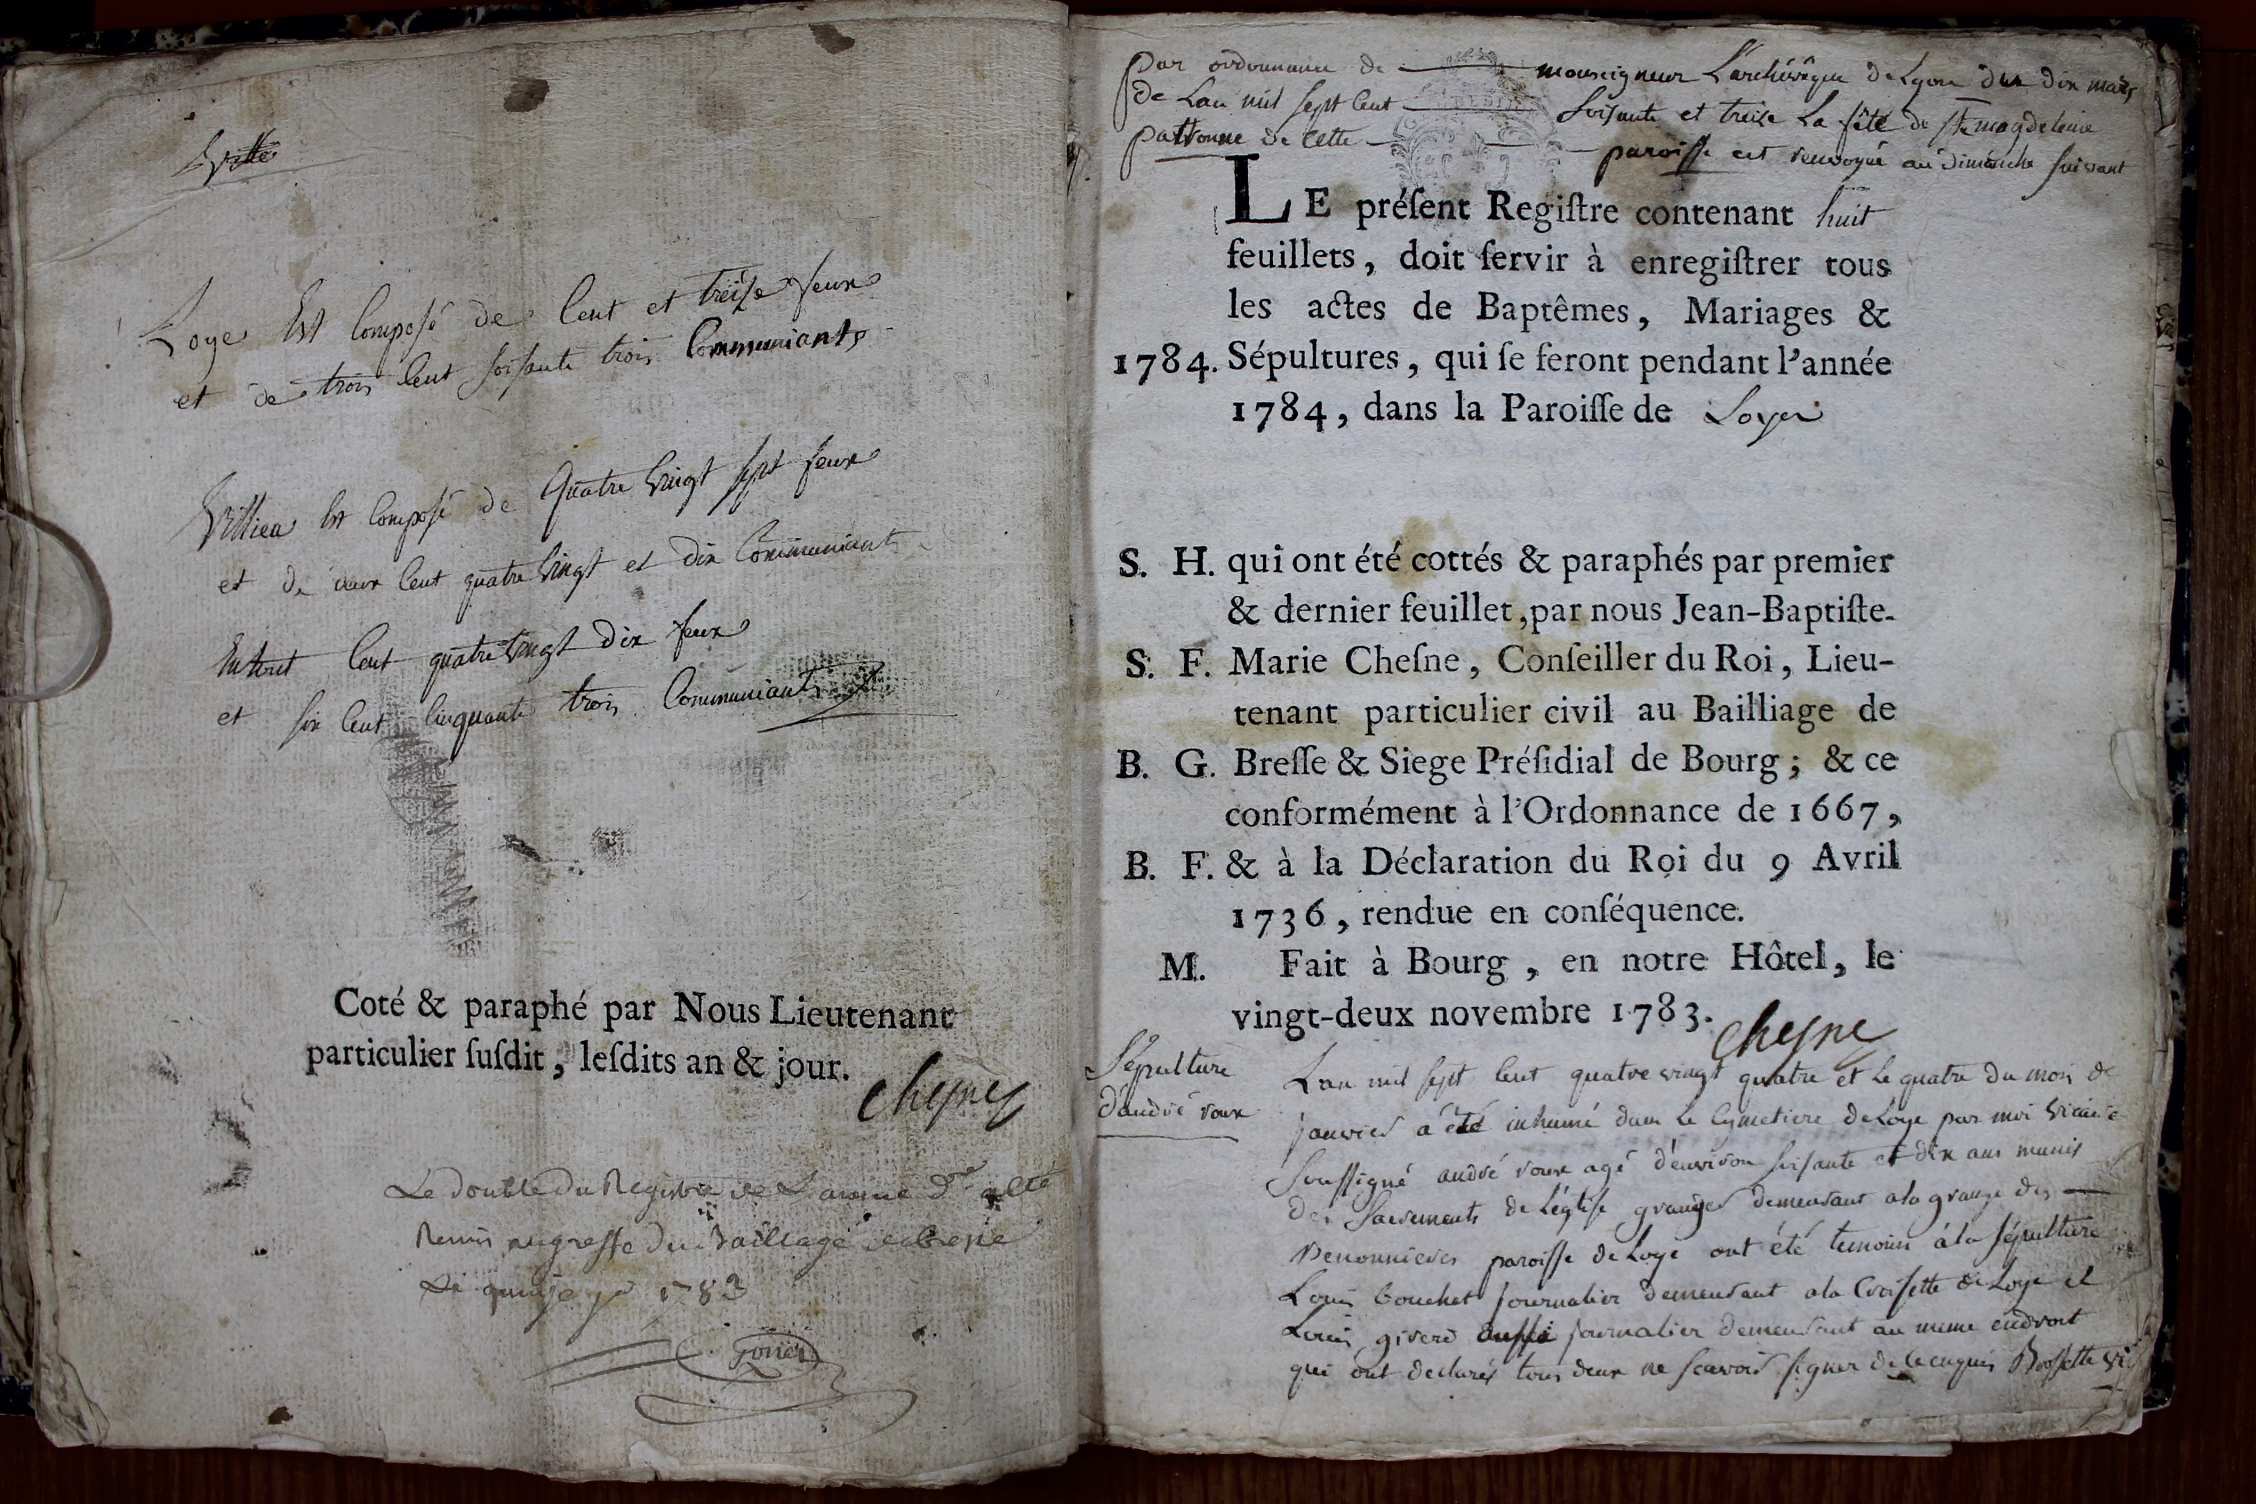 Loye Est Composé de Cent et treise feux
et de trois Cent soisante trois Communiants
Villieu Est Composé de Quatre vingt sept feux
et de deux Cent quatre vingt et dix Communiants
En tout Cent quatre vingt dix feux
et six Cent Cinquante trois Communiants
Coté & paraphé par Nous Lieutenant
particulier ſuſdit, leſdits an & jour.
Chesne
Le double du Registre de L'année a été
Remis au greffe du Bailliage de Bresse
Le quinze 1783
par ordonnance de monseigneur L'archévêque de Lyon du dix mars
de L'an mil sept Cent soisante et treise La fête de ste magdeleine
patronne de Cette paroisse est renvoyée au dimanche suivant
LE préſent Regiſtre contenant huit
feuillets, doit ſervir à enregiſtrer tous
les actes de Baptêmes, Mariages &
1784. Sépultures, qui ſe feront pendant l'année
1784, dans la Paroiſſe de Loye
S. H. qui ont été cottés & paraphés par premier
& dernier feuillet, par nous Jean-Baptiſte-
S. F. Marie Cheſne, Conſeiller du Roi, Lieu-
tenant particulier civil au Bailliage de
B. G. Breſſe & Siege Préſidial de Bourg; & ce
conformément à l'Ordonnance de 1667,
B. F. & à la Déclaration du Roi du 9 Avril
1736, rendue en conſéquence.
M. Fait à Bourg, en notre Hôtel, le
vingt-deux novembre 1783.
Chesne
Sépulture
d'andré roux
L'an mil sept Cent quatre vingt quatre et Le quatre du mois de
janvier a été inhumé dans Le Cymetiere de Loye par moi vicaire
soussigné andré roux agé d'environ soisante et dix ans munis
des Sacrements de L'église granger demeurant a la grange des
paroisse de Loye ont été temoins à la sépulture
Louis bouchet journalier demeurant a la Croisette de Loye et
Louis givero aussi journalier demeurant au meme endroit
qui ont declarés tous deux ne scavoir signer de Ce enquis Brossette vi